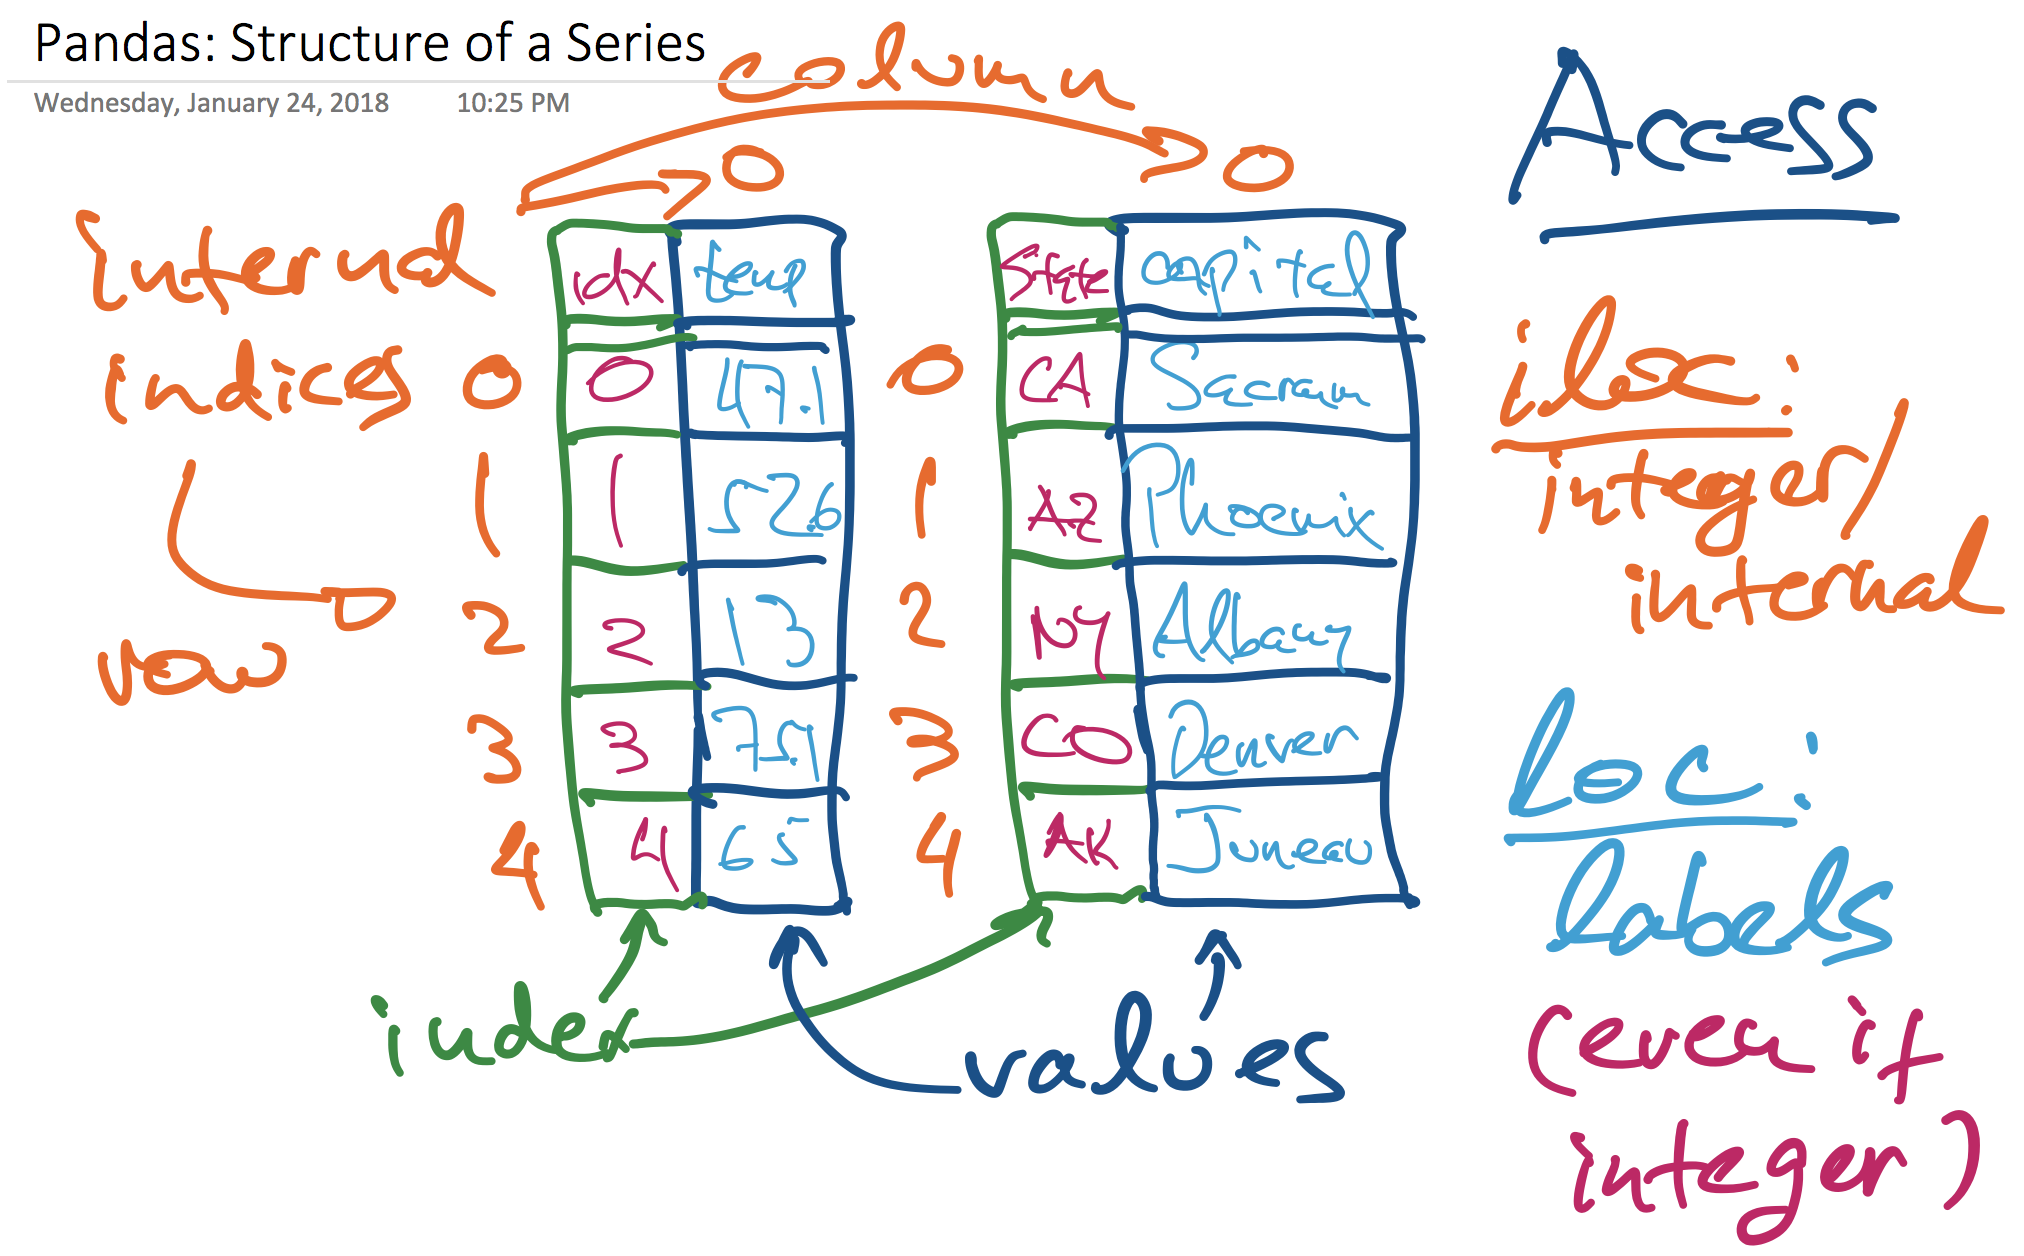 Pandas: Structure of a Series
Wednesday, January 24, 2018 10:25 PM
column
Access
0 0
internal
indices
row
idx temp
0 0 47.1
1 1 52.6
2 2 13
3 3 75.1
4 4 65
State capital
0 CA Sacram
1 AZ Phoenix
2 NY Albany
3 CO Denver
4 AK Juneau
index
values
iloc:
integer/
internal
loc:
labels
(even if
integer)